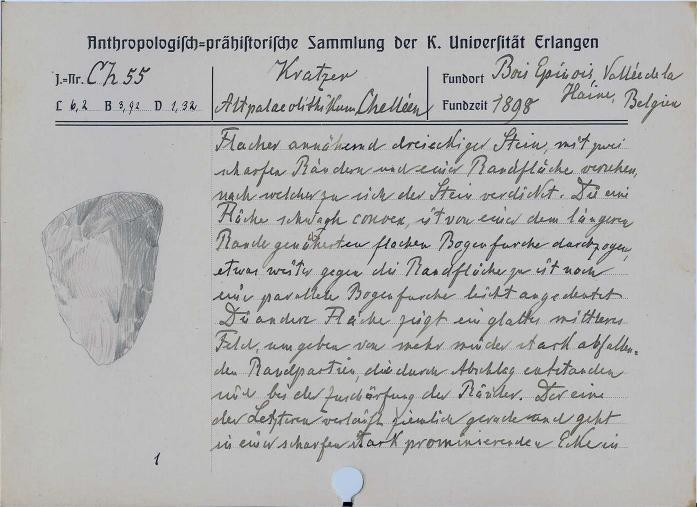 Anthropologisch=prähistorische Sammlung der K. Universität Erlangen
J.=Nr. Ch 55
L 6,2 B 3,92 D 1,32
Kratzer
Altpalaeolithikum Chelléen
Fundort Bois Epinois, Vallée de la Haine, Belgien
Fundzeit 1898
Flacher annähernd dreieckiger Stein, mit zwei
scharfen Rändern und einer Randfläche versehen,
nach welcher zu sich der Stein verdickt. Die eine
Fläche schwach convex, ist von einer dem längeren
Rande genäherten flachen Bogenfurche durchzogen,
etwas weiter gegen die Randfläche zu ist noch
eine parallele Bogenfurche leicht angedeutet
Die andere Fläche zeigt ein glattes mittleres
Feld, umgeben von mehr minder stark abfallen=
den Randpartien, die durch Abschlag entstanden
sind bei der Zuschärfung der Ränder. Der eine
der Letzteren verläuft ziemlich gerade und geht
in einer scharfen stark prominierenden Ecke in
1